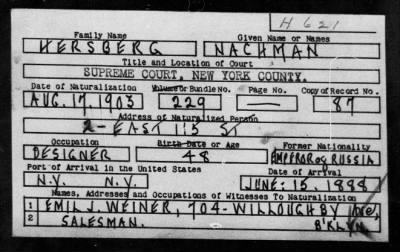 H 621
Family Name Given Name or Names
HERSBERG NACHMAN
Title and Location of Court
SUPREME COURT, NEW YORK COUNTY.
Date of Naturalization Volume or Bundle No. Page No. Copy of Record No.
AUG. 17, 1903 229 — 87
Address of Naturalized Person
2- EAST 115 ST
Occupation Birth Date or Age Former Nationality
DESIGNER 48 EMPEROR OF RUSSIA
Port of Arrival in the United States Date of Arrival
N.Y. N.Y. JUNE: 15, 1888
Names, Addresses and Occupations of Witnesses To Naturalization
1 EMIL J. WEINER, 704- WILLOUGHBY Ave,
2 SALESMAN. B'KLYN.